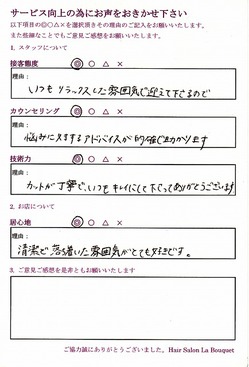 サービス向上の為にお声をおきかせ下さい
以下項目の◎○△×を選択頂きその理由をご記入をお願いいたします。
また些細なことでもご意見ご感想をお願いいたします。
1. スタッフについて
接客態度 ◎ ○ △ ×
理由:
いつもリラックスした雰囲気で迎えて下さるので
カウンセリング ◎ ○ △ ×
理由:
悩みに対するアドバイスが的確で助かります
技術力 ◎ ○ △ ×
理由:
カットが丁寧で、いつもキレイにして下さってありがとうございます
2. お店について
居心地 ◎ ○ △ ×
理由:
清潔で落着いた雰囲気がとても好きです。
3. ご意見ご感想を是非ともお願いいたします
ご協力誠にありがとうございました。Hair Salon La Bouquet